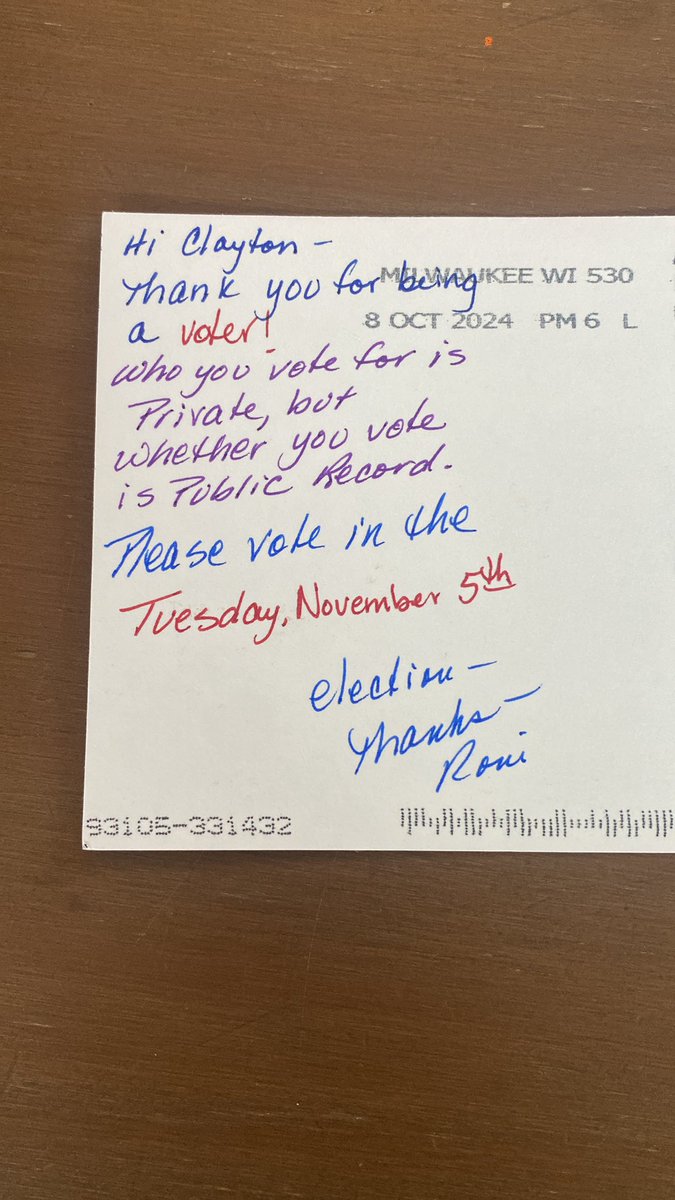 Hi Clayton -
Thank you for being
a voter!
Who you vote for is
Private, but
whether you vote
is Public Record.
Please vote in the
Tuesday, November 5th
election -
Thanks -
Roni
MILWAUKEE WI 530
8 OCT 2024 PM 6 L
93105-331432